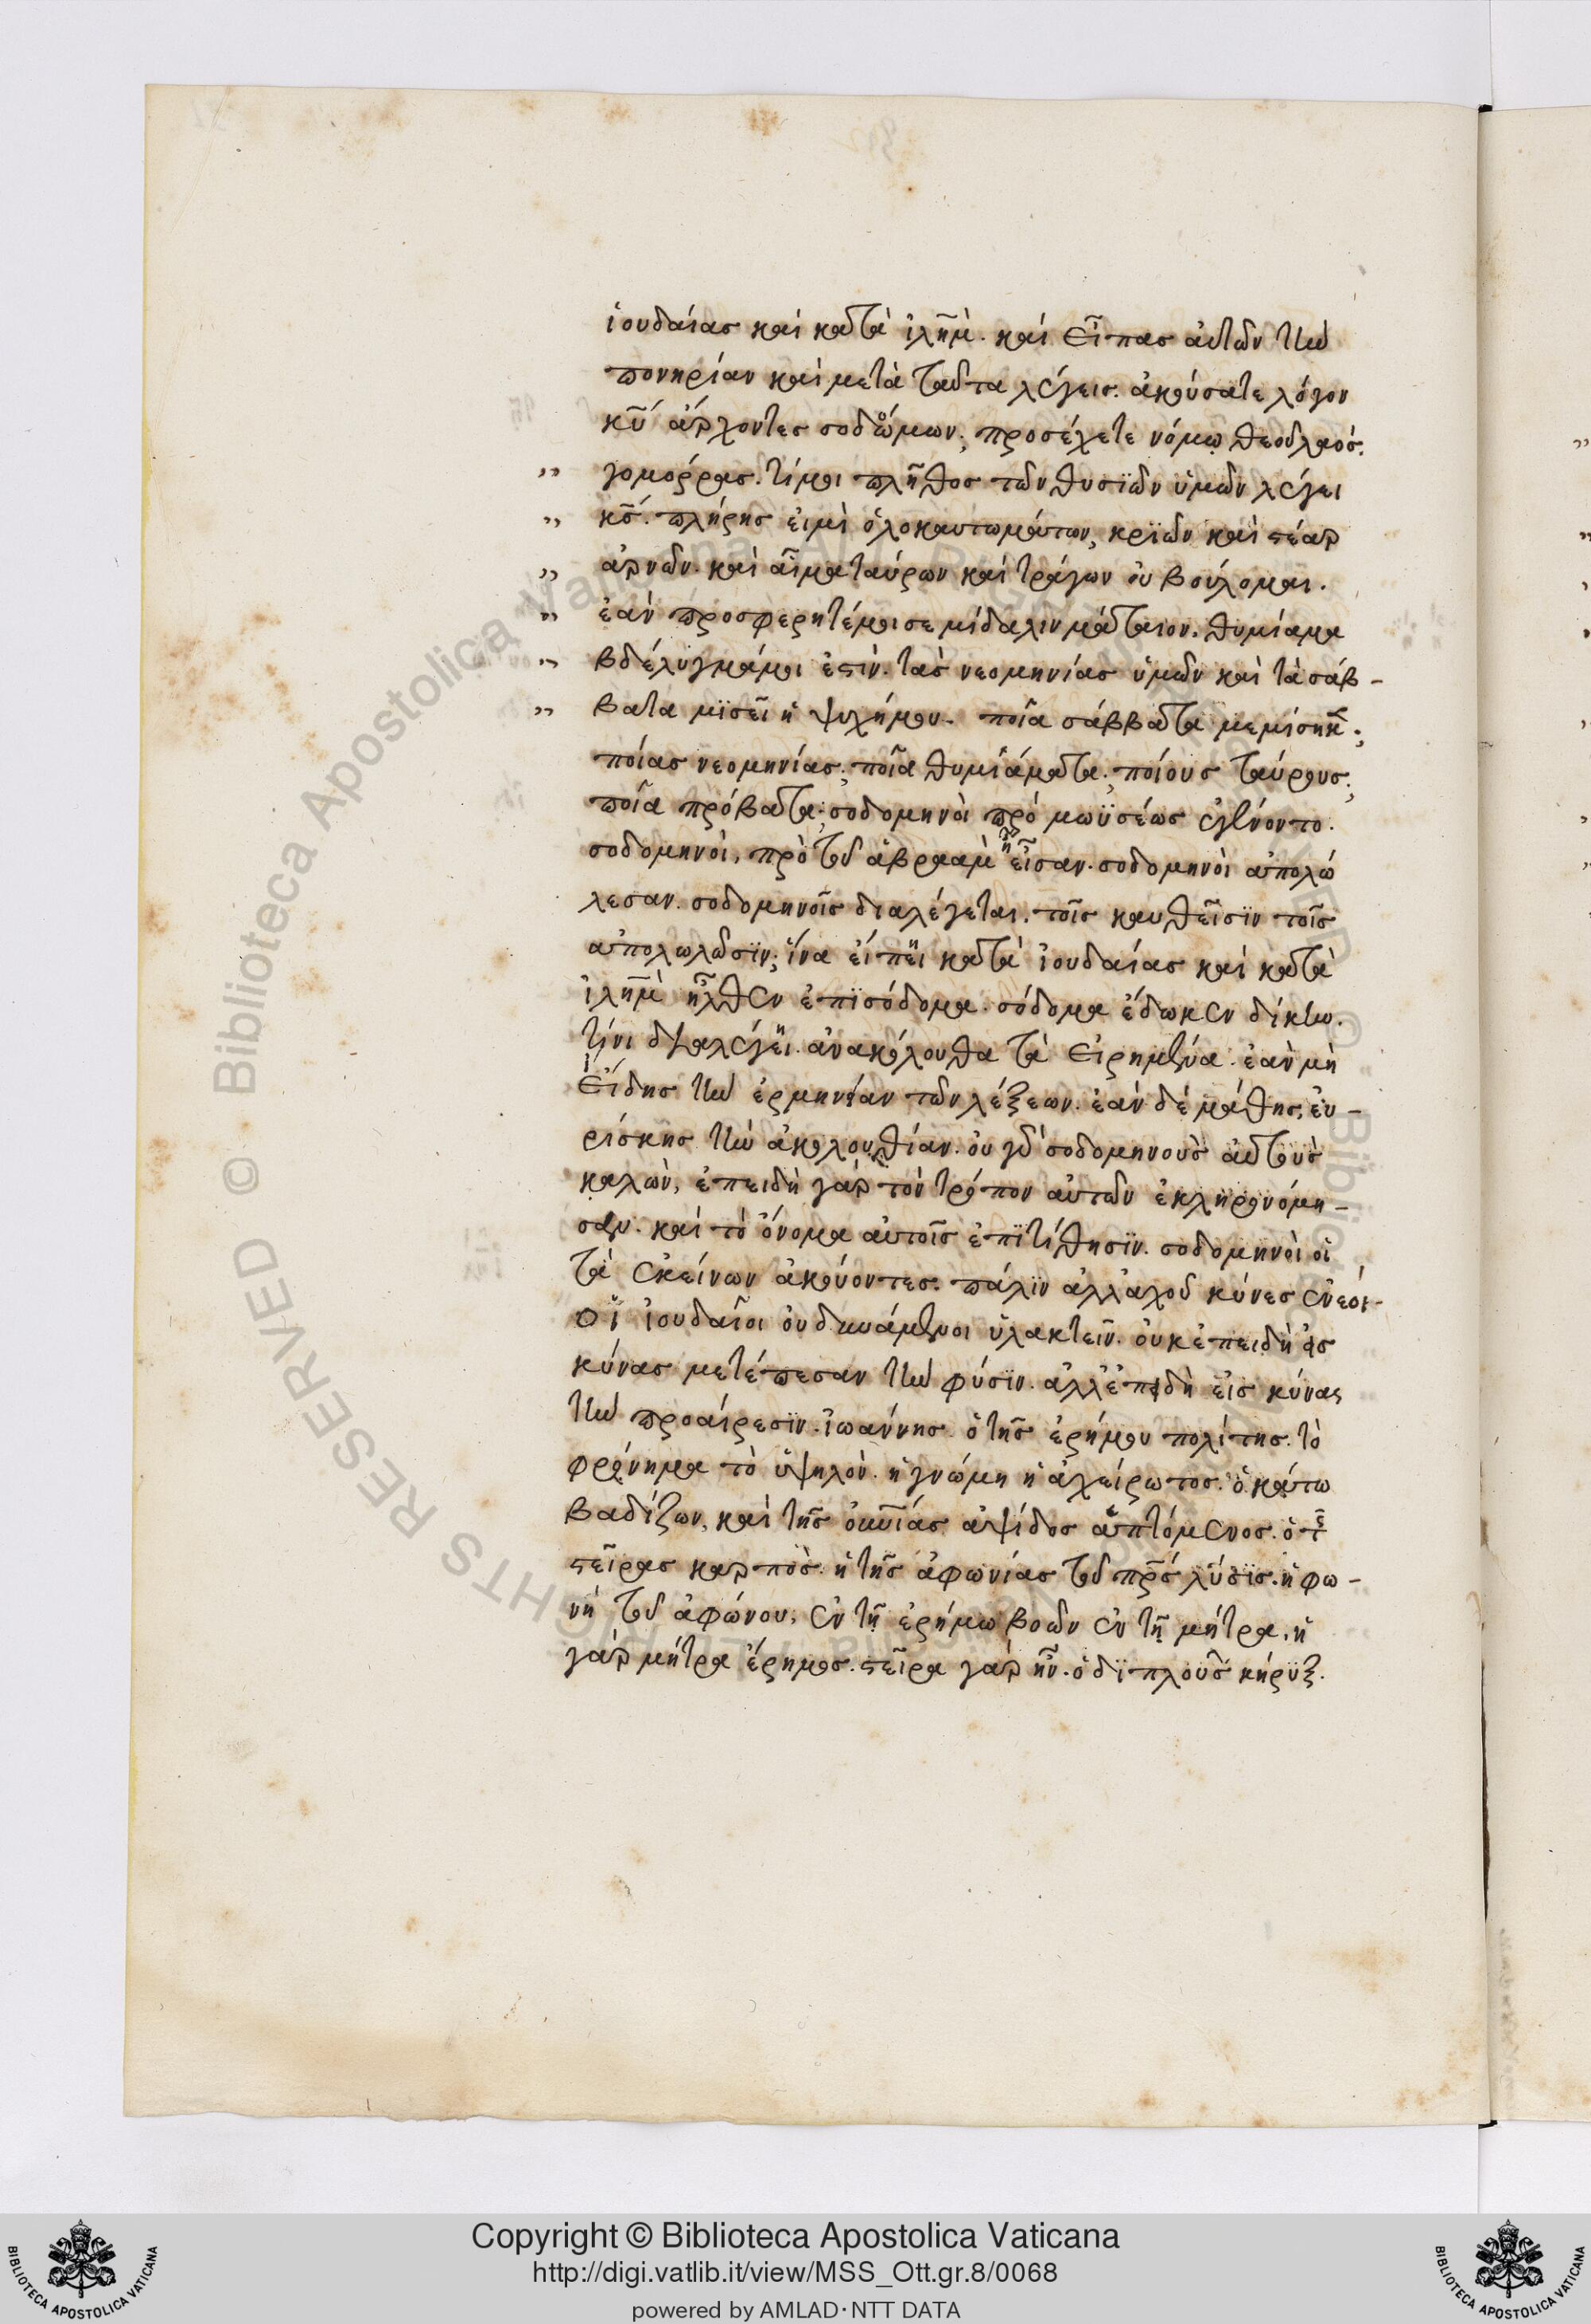 ἰουδαίας καὶ κατὰ ἰλῆμ̀. καὶ εἶπας ἀυτῶν τὴν
πονηρίαν καὶ μετὰ ταῦτα λέγεις. ἀκούσατε λόγον
κ̅υ̅ ἄρχοντες σοδόμων; προσέχετε νόμω θεοῦ λαὸς.
γομόρρας. τί μοι πλῆθος τῶν θυσϊῶν ὑμῶν λέγει
κ̅ς̅. πλήρης εἰμὶ ὁλοκαυτωμάτων, κρϊῶν καὶ στέαρ
ἀρνῶν. καὶ αἷμα ταύρων καὶ τράγων ὀυ βούλομαι.
ἐὰν προσφερητέ μοι σεμίδαλιν μάταιον. θυμίαμα
βδέλυγμά μοι ἐστὶν. τὰς νεομηνίας ὑμῶν καὶ τὰ σάβ-
βατα μϊσεῖ ἡ ψυχή μου. ποῖα σάββατα μεμίσηκε;
ποίας νεομηνίας; ποῖα θυμιάματα; ποίους ταύρους;
ποῖα πρόβατα; σοδομηνὰι πρὸ μωϋσέως ἐγένοντο.
σοδομηνοὶ, πρὸ τοῦ ἀβραὰμ εἶσαν. σοδομηνὸι ἀπολώ
λεσαν. σοδομηνοῖς διαλέγεται. τοῖς καυθεῖσϊν τοῖς
ἀπολωλῶσϊν; ἵνα ἐίπϊη κατὰ ἰουδαίας καὶ κατὰ
ἰλῆμ̀ ἦλθεν ἐπϊ σόδομα. σόδομα ἔδωκεν δίκην.
τίνι διαλέγϊη. ἀνακόλουθα τὰ εἰρημένα. ἐὰν μὴ
εἴδης τὴν ἑρμηνίαν τῶν λέξεων. ἐὰν δὲ μάθης, ἑυ-
ρίσκης τὴν ἀκολουθίαν. ὀυ γὰρ σοδομηνοὺς ἀυτοὺς
καλὼν, ἐπειδὴ γὰρ τὸν τρόπον αὐτῶν ἐκληρονόμη-
σαν. καὶ τὸ ὄνομα αὐτοῖς ἐπϊτίθησϊν. σοδομηνὸι οἱ
τὰ ἐκείνων ἀκούοντες. πάλϊν ἀλλἀχοῦ κύνες ἐνεοὶ-
οἵ ἰουδαῖοι ὀυ δυνάμενοι ὑλακτεῖν. ὀυκ ἐπειδὴ εἰς
κύνας μετέπεσαν τὴν φύσϊν. ἀλλ' ἐπειδὴ εἰς κύνας
τὴν προαίρεσϊν. ἰωάννης ὁ τῆς ἐρήμου πολίτης. τὸ
φρόνημα τὸ ὑψηλὸν. ἡ γνώμη ἡ ἀχείρωτος. ὁ κάτω
βαδίζων, καὶ τῆς ὀυνίας ἀψίδος ἁπτόμενος. ὁ τῆς
στείρας καρπὸς. ἡ τῆς ἀφωνίας τοῦ π̅ρ̅ς̅ λύσϊς. ἡ φω-
νὴ τοῦ ἀφώνου, ἐν τῆ ἐρήμω βοῶν ἐν τῆ μήτρα, ἡ
γὰρ μήτρα ἔρημος. στεῖρα γὰρ ἦν. ὁ δϊπλοῦς κήρυξ.